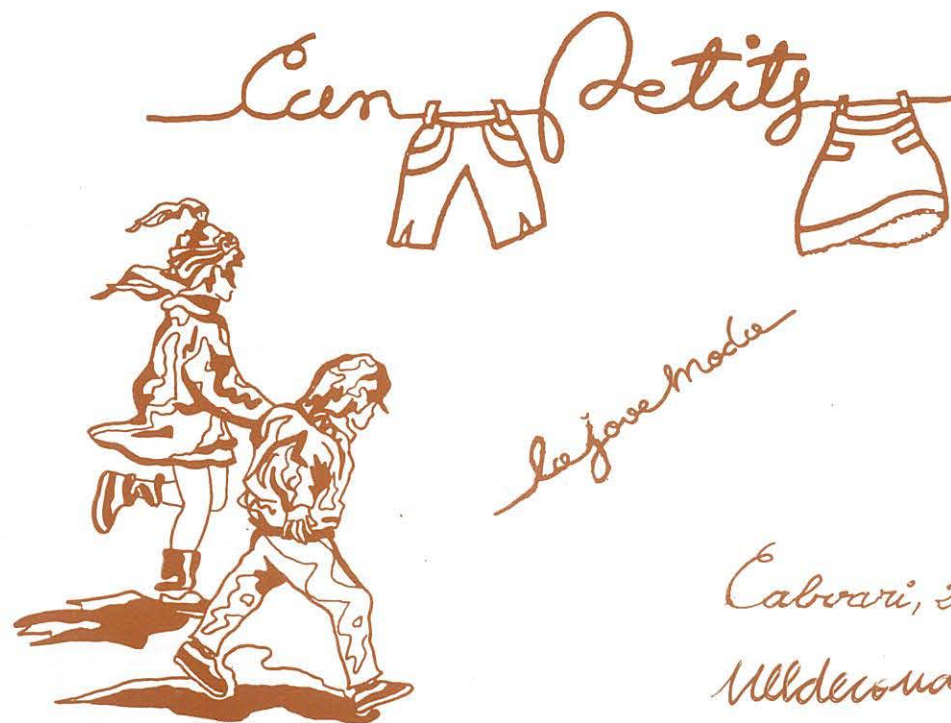 Can Petits
la jove moda
Calvari,
Ulldecona